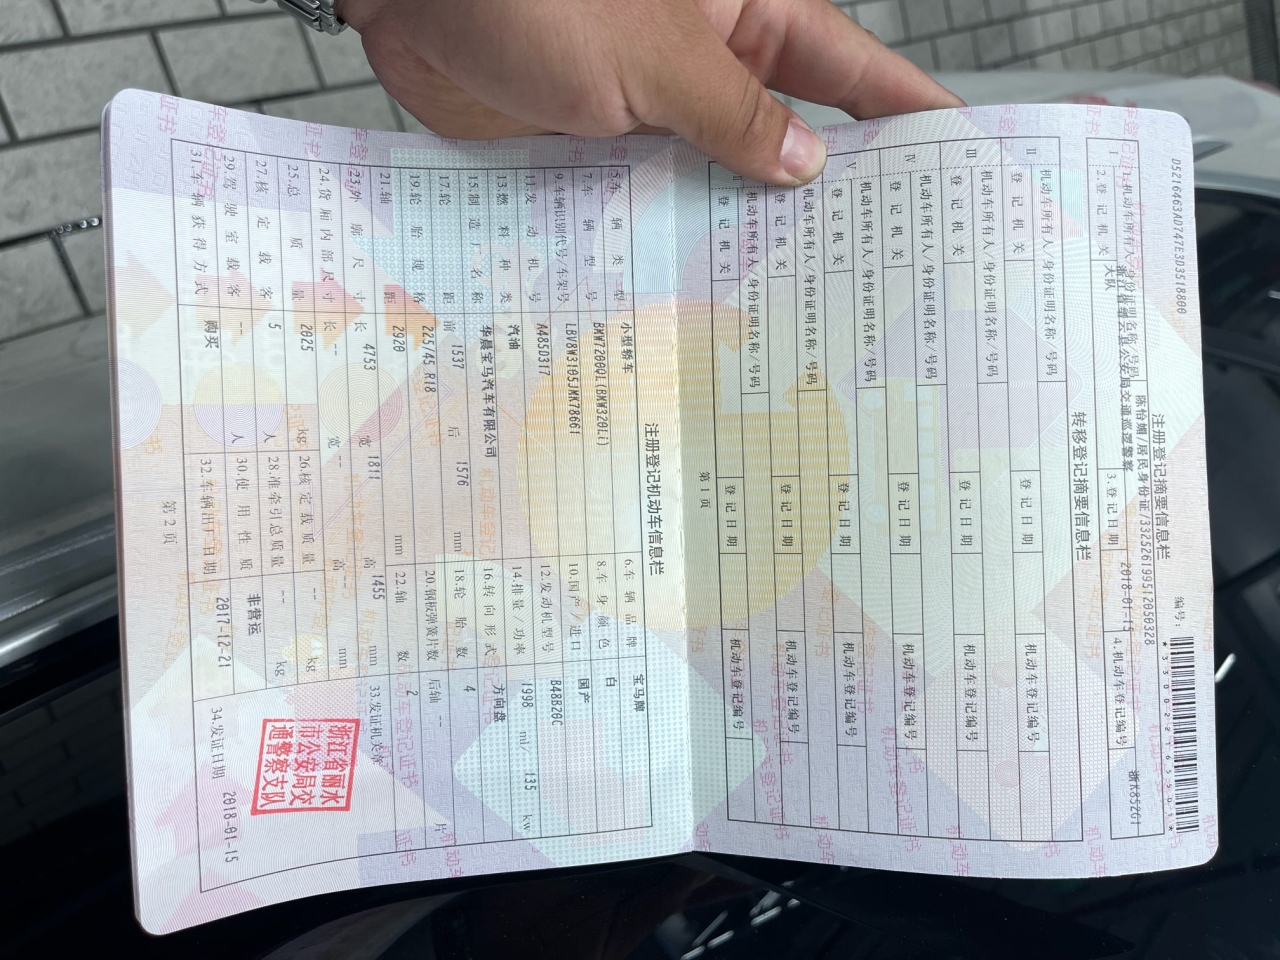 D5216663AD747E3D3518800
编号:
*330022965501*
注册登记摘要信息栏
I
1.机动车所有人/身份证明名称/号码 陈怡媚/居民身份证/332526199512050328
2.登记机关 浙江省缙云县公安局交通巡逻警察大队
3.登记日期 2018-01-15
4.机动车登记编号 浙K852G1
转移登记摘要信息栏
II
机动车所有人/身份证明名称/号码
登记机关 登记日期 机动车登记编号
III
机动车所有人/身份证明名称/号码
登记机关 登记日期 机动车登记编号
IV
机动车所有人/身份证明名称/号码
登记机关 登记日期 机动车登记编号
V
机动车所有人/身份证明名称/号码
登记机关 登记日期 机动车登记编号
机动车所有人/身份证明名称/号码
登记机关 登记日期 机动车登记编号
机动车所有人/身份证明名称/号码
登记机关 登记日期 机动车登记编号
第1页
注册登记机动车信息栏
5.车辆类型 小型轿车 6.车辆品牌 宝马牌
7.车辆型号 BMW7200QL(BMW320Li) 8.车身颜色 白
9.车辆识别代号/车架号 LBV8W3105JMK78661 10.国产/进口 国产
11.发动机号 A485D317 12.发动机型号 B48B20C
13.燃料种类 汽油 14.排量/功率 1998 ml/ 135 kw
15.制造厂名称 华晨宝马汽车有限公司 16.转向形式 方向盘
17.轮距 前 1537 后 1576 mm 18.轮胎数 4
19.轮胎规格 225/45 R18 20.钢板弹簧片数 后轴 -- 片
21.轴距 2920 mm 22.轴数 2
23.外廓尺寸 长 4753 宽 1811 高 1455 mm 33.发证机关章
24.货厢内部尺寸 长 -- 宽 -- 高 -- mm
25.总质量 2025 kg 26.核定载质量 -- kg
27.核定载客 5 人 28.准牵引总质量 -- kg
29.驾驶室载客 -- 人 30.使用性质 非营运
31.车辆获得方式 购买 32.车辆出厂日期 2017-12-21 34.发证日期 2018-01-15
浙江省丽水
市公安局交
通警察支队
第2页